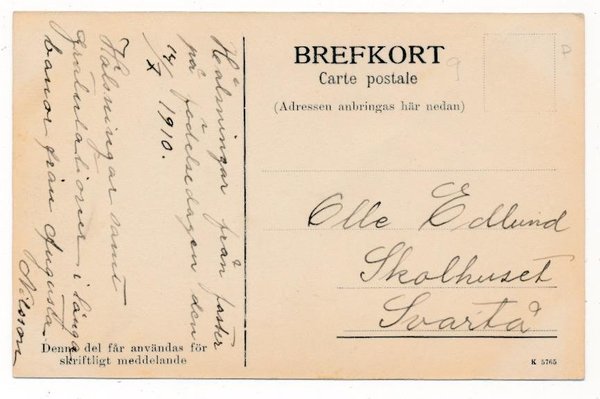 BREFKORT
Carte postale
(Adressen anbringas här nedan)
Olle Edlund
Skolhuset
Svartå
Hälsningar från faster
på födelsedagen den
14/X 1910.
Hälsningar samt
gratulationer i långa
banor från Augusta
Nilsson
Denna del får användas för
skriftligt meddelande
K 5765